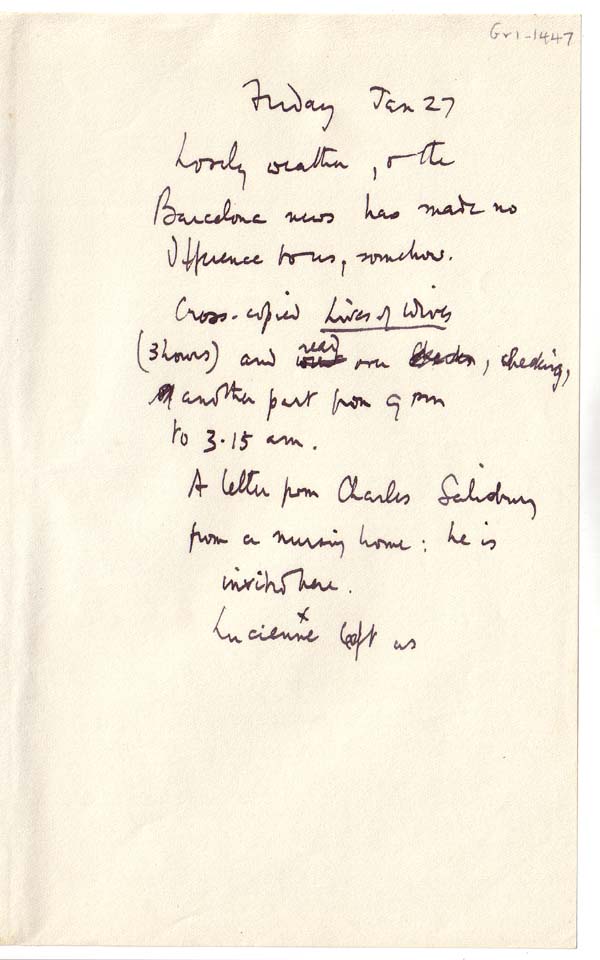 Gr1-1447
Friday Jan 27
Lovely weather, & the
Barcelona news has made no
difference to us, somehow.
Cross-copied Lives of Wives
(3 hours) and read over, checking,
another part from 9 pm
to 3.15 am.
A letter from Charles Salisbury
from a nursing home: he is
invited here.
Lucienne x left us